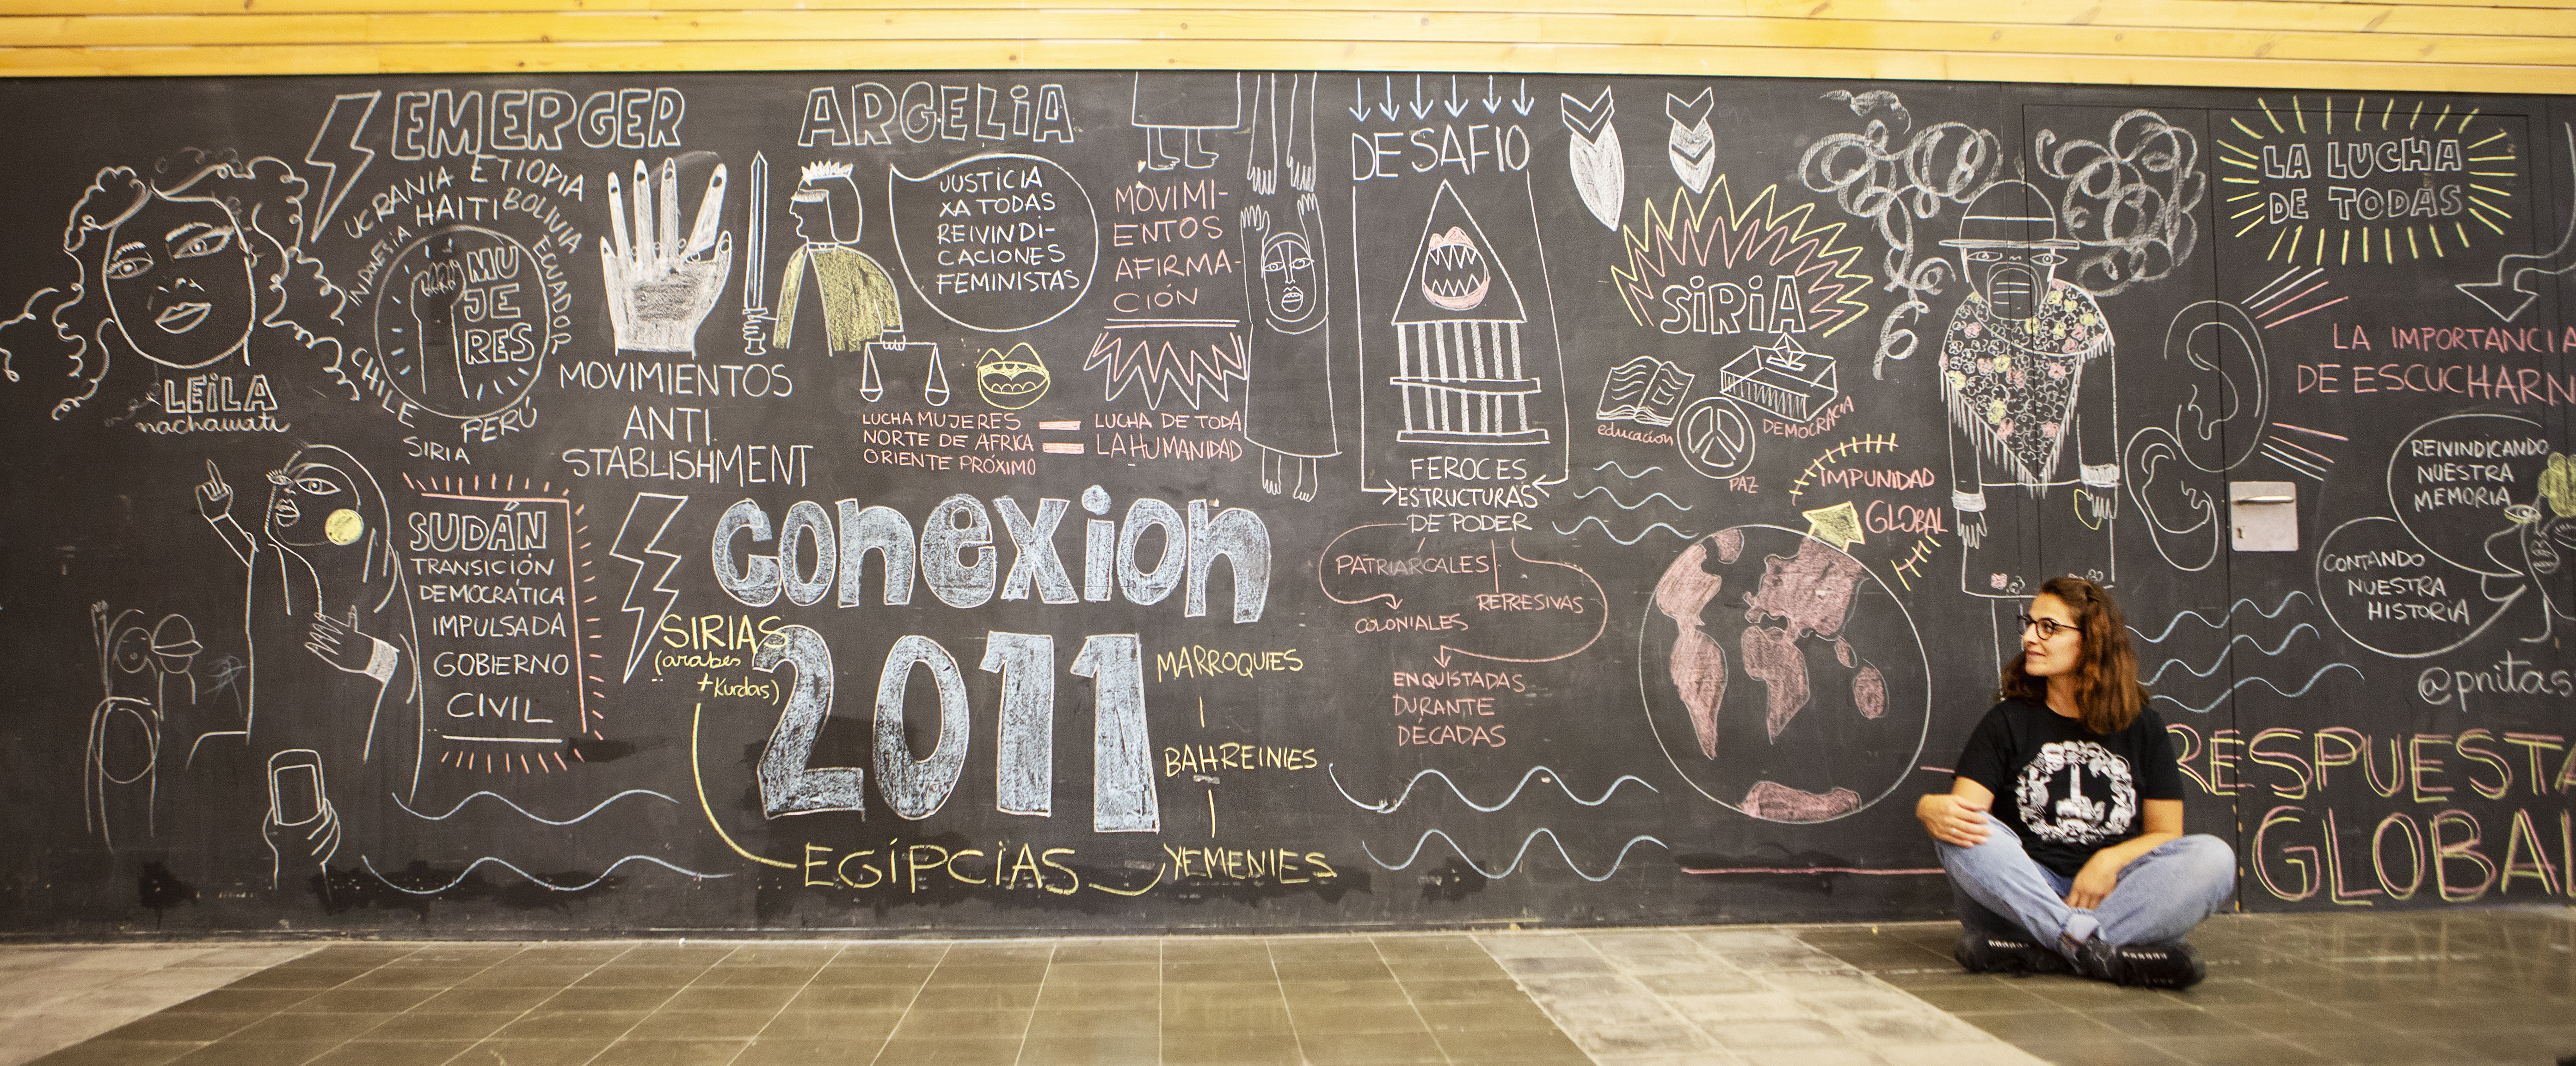 EMERGER
UCRANIA ETIOPIA
HAITI BOLIVIA
INDONESIA
ECUADOR
MU
JE
RES
CHILE
PERÚ
SIRIA
LEILA
nachawati
MOVIMIENTOS
ANTI
STABLISHMENT
SUDÁN
TRANSICIÓN
DEMOCRÁTICA
IMPULSADA
GOBIERNO
CIVIL
ARGELIA
JUSTICIA
XA TODAS
REIVINDI-
CACIONES
FEMINISTAS
LUCHA MUJERES
NORTE DE AFRKA
ORIENTE PRÓXIMO
=
LUCHA DE TODA
LA HUMANIDAD
MOVIMI-
ENTOS
AFIRMA-
CIÓN
CONEXION
2011
SIRIAS
(arabes
+Kurdas)
EGÍPCIAS
YEMENIES
BAHREINIES
MARROQUIES
DESAFIO
FEROCES
ESTRUCTURAS
DE PODER
PATRIARCALES
REPRESIVAS
COLONIALES
ENQUISTADAS
DURANTE
DÉCADAS
SIRIA
educacion
PAZ
DEMOCRACIA
IMPUNIDAD
GLOBAL
LA LUCHA
DE TODAS
LA IMPORTANCIA
DE ESCUCHARN
REIVINDICANDO
NUESTRA
MEMORIA
CONTANDO
NUESTRA
HISTORIA
@pnitas
RESPUESTA
GLOBAL